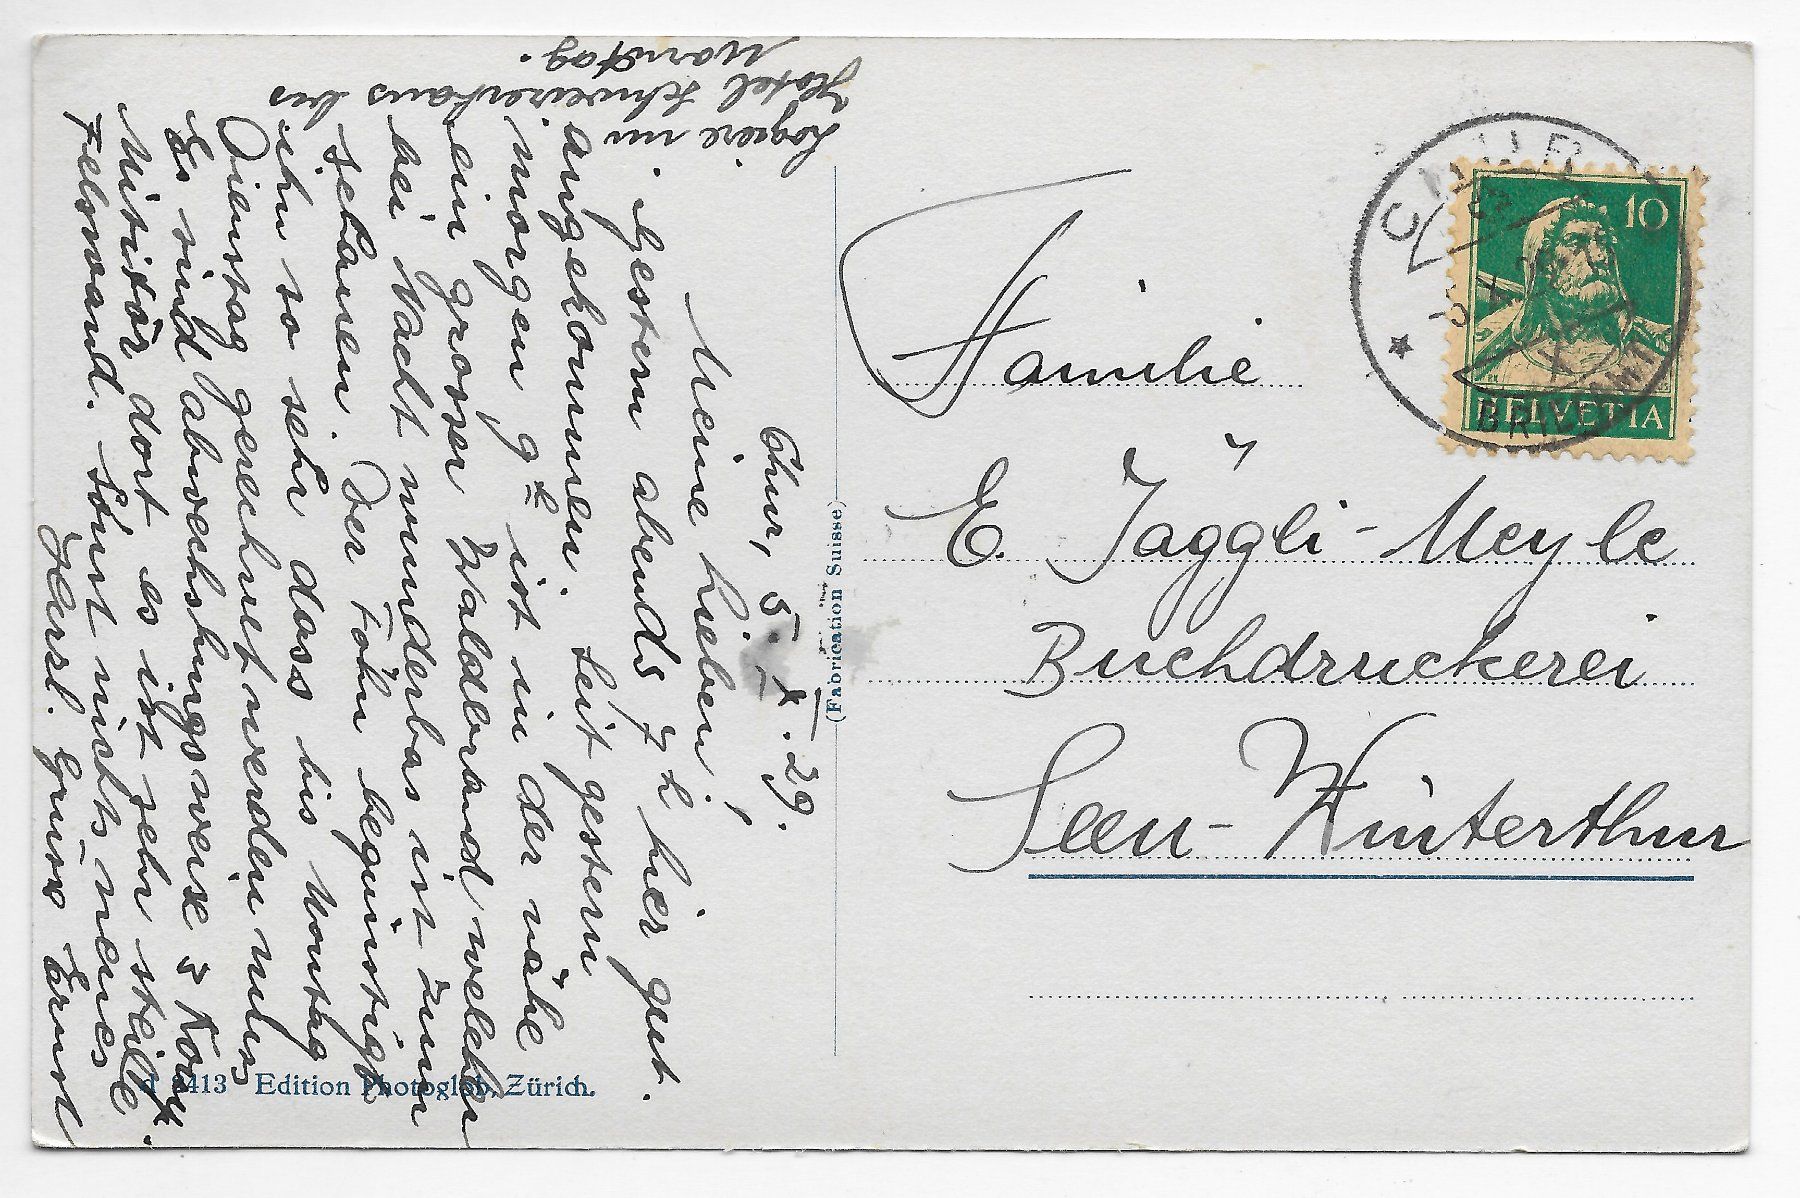 Chur, 5. X. 29.
Meine Lieben!
Gestern abends 7 h hier gut
angekommen. Seit gestern
morgen 9 h ist in der nähe
ein grosser Waldbrand welcher
bei Nacht wunderbar ist zum
schauen. Der Föhn begünstigt
ihn so sehr dass bis Montag
Dienstag gerechnet werden muss
Es sind abwechslungsweise
Militär dort es ist sehr steille
Felswand. Sonst nichts neues
Herzl. Grüsse Ernst
Logiere im
Hotel Schweizerhaus bis
Montag.
Familie
E. Jäggli-Meyle
Buchdruckerei
Seen-Winterthur
(Fabrication Suisse)
8413 Edition Photoglob, Zürich.
10
HELVETIA
CHUR